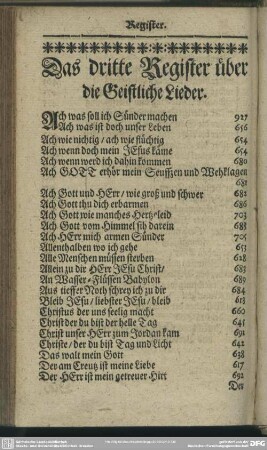 Register.
Das dritte Register über
die Geistliche Lieder.
Ach was soll ich Sünder machen 927
Ach was ist doch unser Leben 656
Ach wie nichtig / ach wie flüchtig 654
Ach wenn doch mein JEsus käme 654
Ach wenn werd ich dahin kommen 680
Ach GOTT erhör mein Seufftzen und Wehklagen
681
Ach Gott und HErr / wie groß und schwer 682
Ach Gott thu dich erbarmen 686
Ach Gott wie manches Hertzleid 703
Ach Gott vom Himmel sih darein 688
Ach HErr mich armen Sünder 705
Allenthalben wo ich gehe 613
Alle Menschen müssen sterben 628
Allein zu dir HErr JEsu Christ / 683
An Wasser-Flüssen Babylon 689
Aus tieffer Noth schrey ich zu dir 684
Bleib JEsu / liebster JEsu / bleib 613
Christus der uns seelig macht 660
Christ der du bist der helle Tag 645
Christ unser HErr zum Jordan kam 691
Christe / der du bist Tag und Licht 642
Das walt mein Gott 638
Der am Creutz ist meine Liebe 617
Der HErr ist mein getreuer Hirt 692
Der